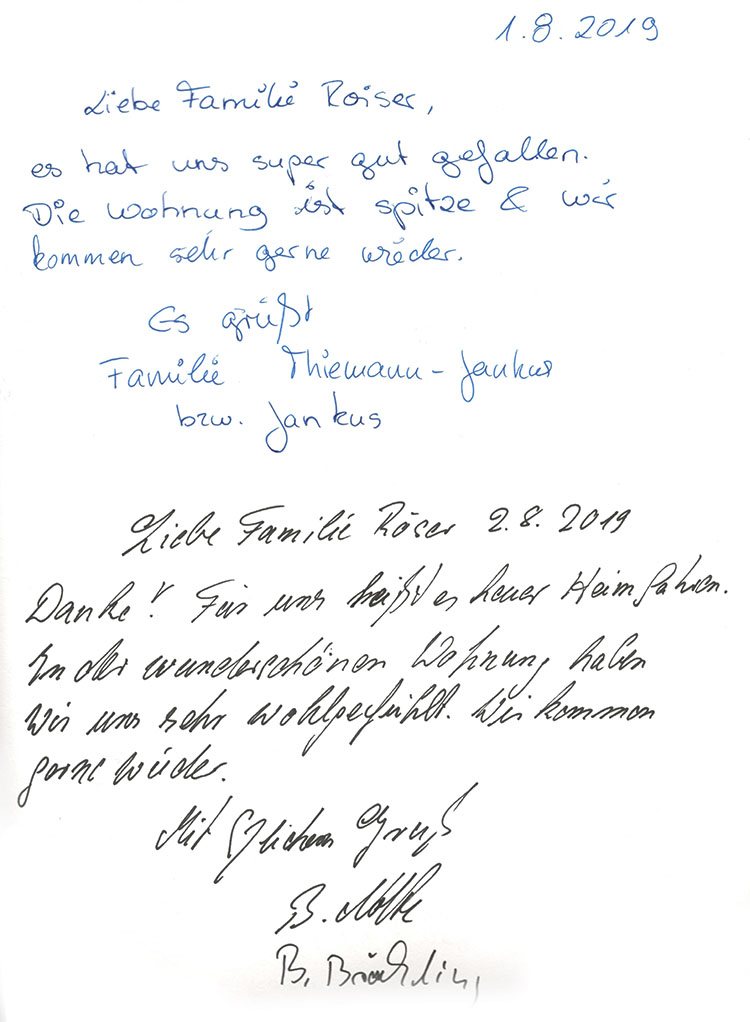 1.8.2019
Liebe Familie Roiser,
es hat uns super gut gefallen.
Die Wohnung ist spitze & wir
kommen sehr gerne wieder.
Es grüßt
Familie Thiemann-Jankus
bzw. Jankus
Liebe Familie Röser 2.8.2019
Danke! Für uns heißt es heuer Heimfahren.
In der wunderschönen Wohnung haben
wir uns sehr wohlgefühlt. Wir kommen
gerne wieder.
Mit Gruß
B.
B.